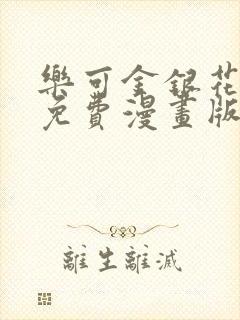 樂可金銀花
免費漫畫版
離生離滅